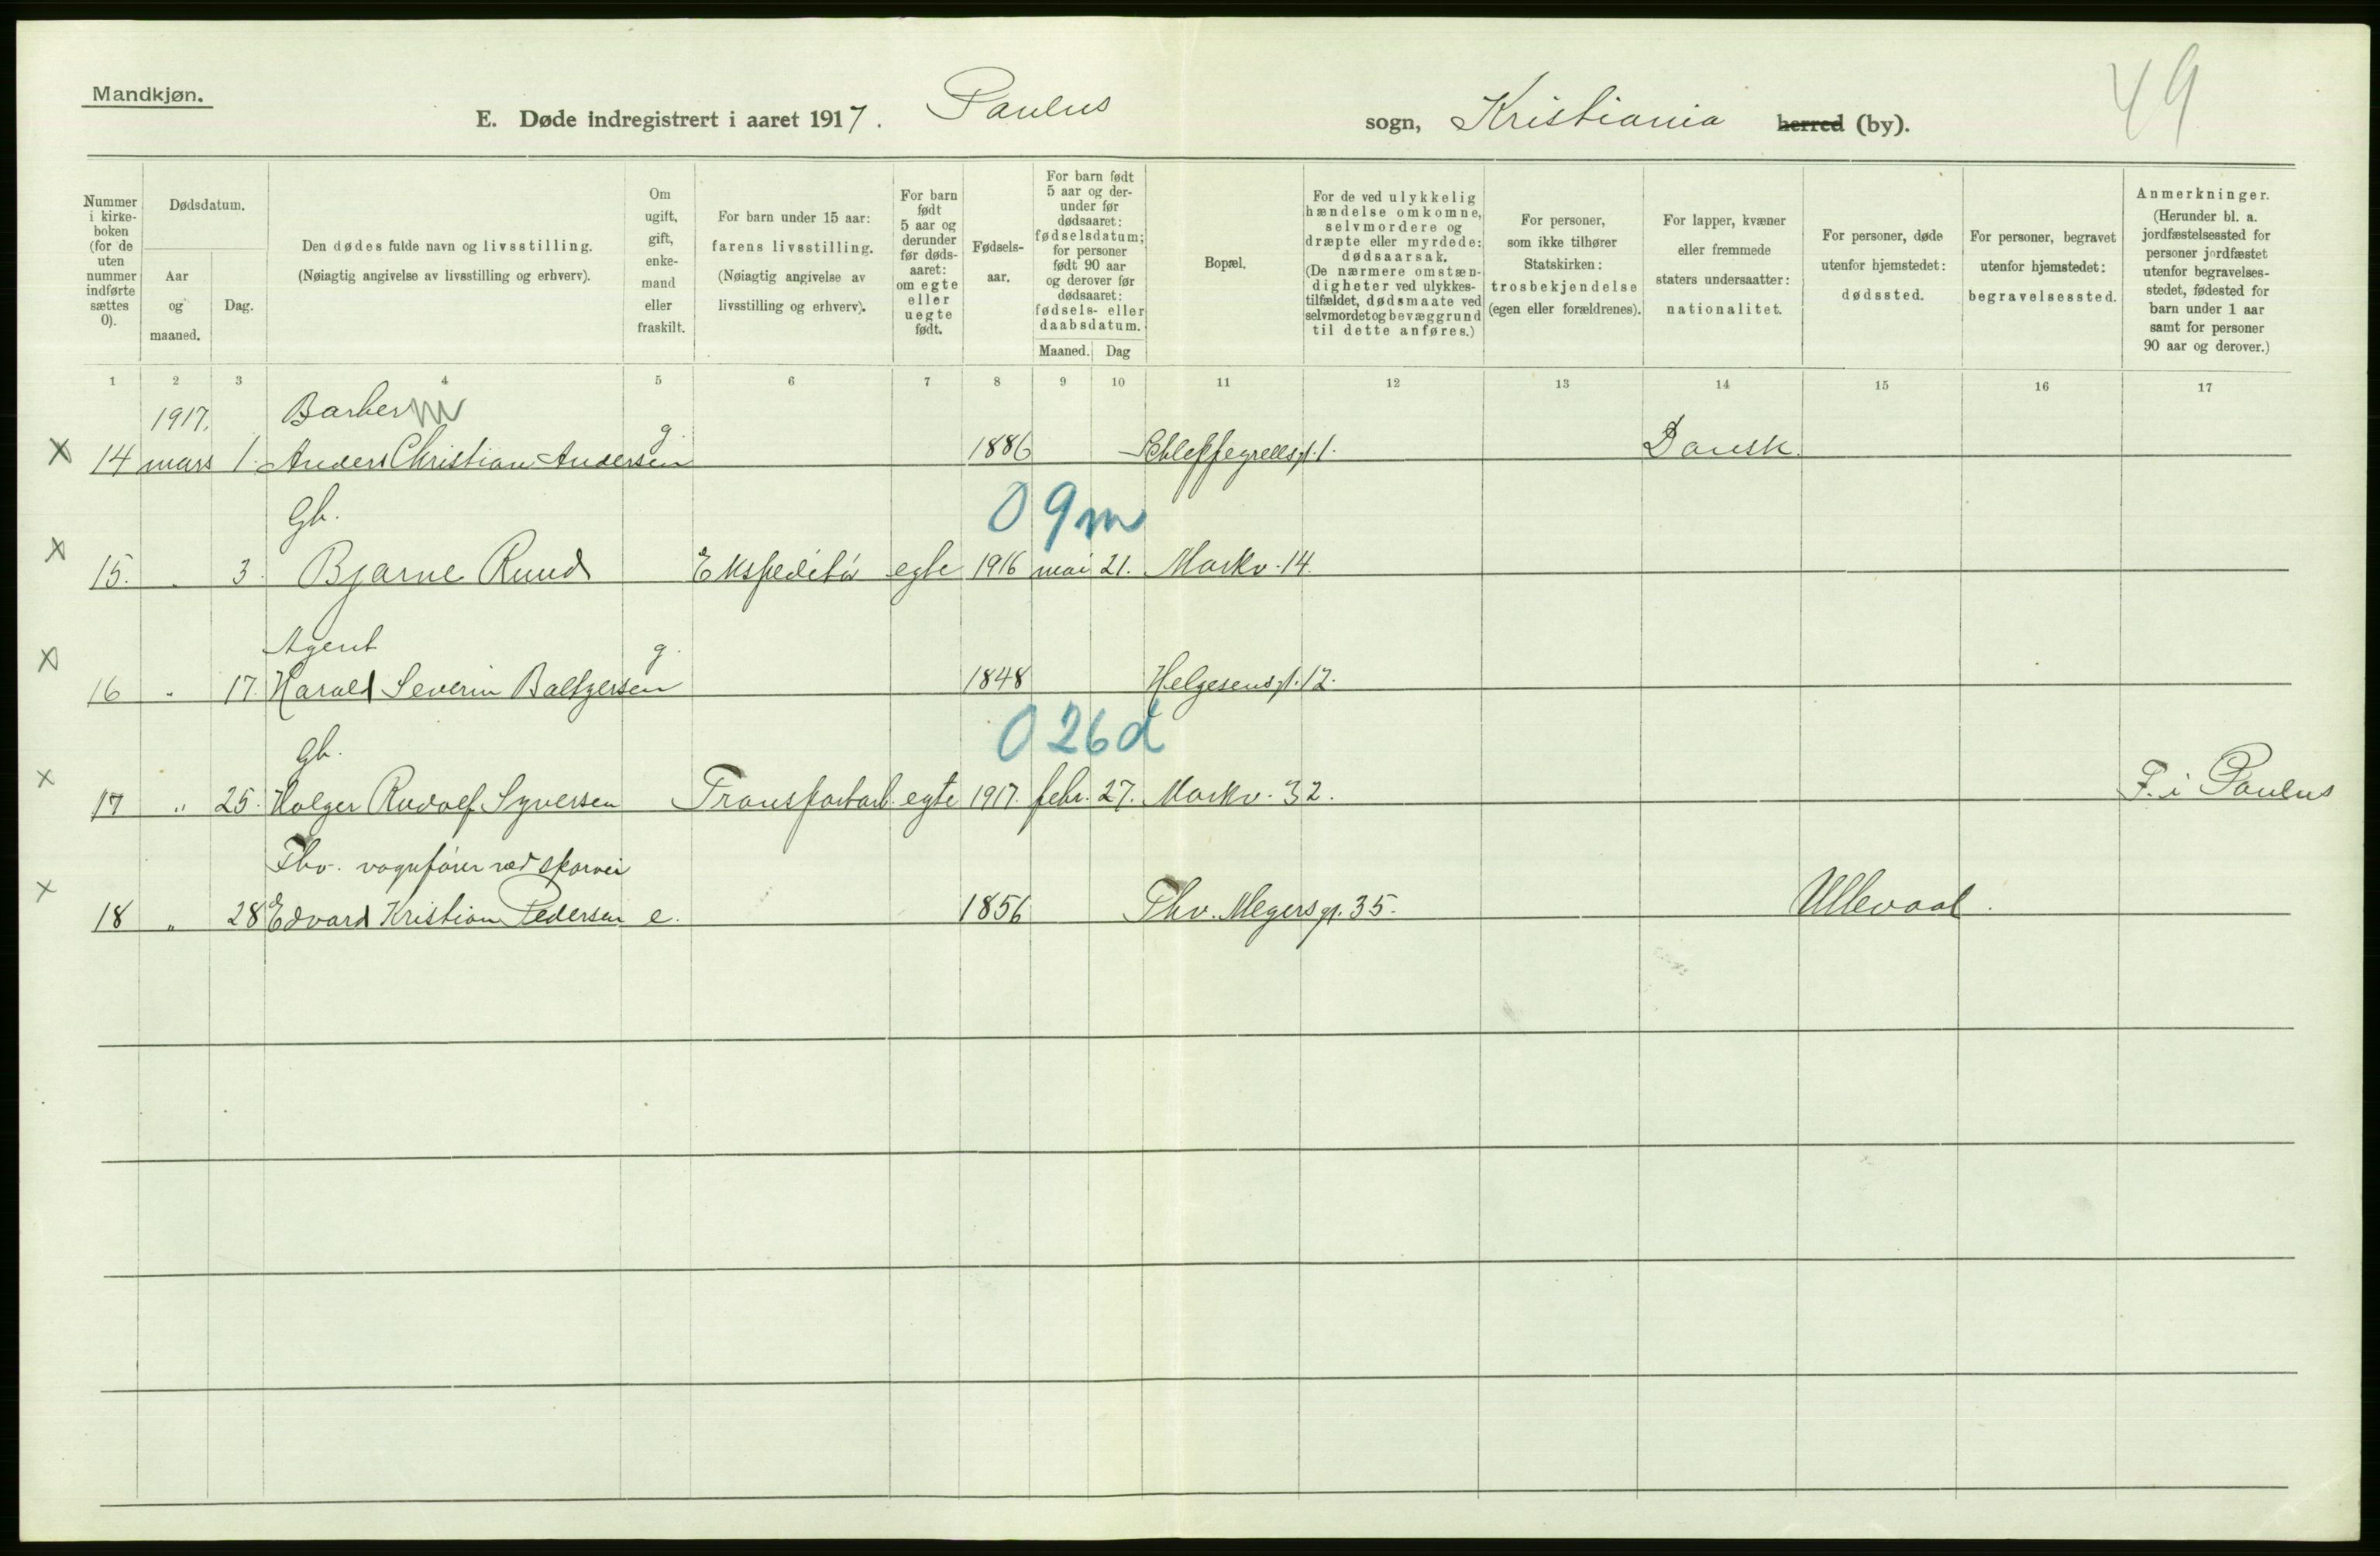 Mandkjøn.
E. Døde indregistrert i aaret 1917. Paulus sogn, Kristiania herred (by).
49
Nummer i kirkeboken (for de uten nummer indførte sættes 0).
Dødsdatum.
Aar og maaned.
Dag.
Den dødes fulde navn og livsstilling.
(Nøiagtig angivelse av livsstilling og erhverv).
Om ugift, gift, enkemand eller fraskilt.
For barn under 15 aar: farens livsstilling.
(Nøiagtig angivelse av livsstilling og erhverv).
For barn født 5 aar og derunder før dødsaaret: om egte eller uegte født.
Fødselsaar.
For barn født 5 aar og derunder før dødsaaret: fødselsdatum; for personer født 90 aar og derover før dødsaaret: fødsels- eller daabsdatum.
Maaned. Dag
Bopæl.
For de ved ulykkelig hændelse omkomne, selvmordere og dræpte eller myrdede: dødsaarsak.
(De nærmere omstændigheter ved ulykkestilfældet, dødsmaate ved selvmordet og bevæggrund til dette anføres.)
For personer, som ikke tilhører Statskirken: trosbekjendelse (egen eller forældrenes).
For lapper, kvæner eller fremmede staters undersaatter: nationalitet.
For personer, døde utenfor hjemstedet: dødssted.
For personer, begravet utenfor hjemstedet: begravelsessted.
Anmerkninger.
(Herunder bl. a. jordfæstelsessted for personer jordfæstet utenfor begravelsesstedet, fødested for barn under 1 aar samt for personer 90 aar og derover.)
1 2 3 4 5 6 7 8 9 10 11 12 13 14 15 16 17
1917. Barber m
x 14 mars 1. Anders Christian Andersen g. 1886 Schleppegrellsgt. 1. Dansk.
Gb. 0 9 m
x 15. " 3. Bjarne Ruud Ekspeditør egte 1916 mai 21. Markv. 14.
Agent
x 16 " 17. Harald Severin Baltzersen g. 1848 Helgesensgt. 12.
Gb. 0 26 d
x 17 " 25. Holger Rudolf Syversen Transportarb. egte 1917. febr. 27. Markv. 32. F. i Paulus
Fhv. vognfører ved sporvei
x 18 " 28 Edvard Kristian Pedersen e. 1856 Thv. Meyersgt. 35. Ullevaal.